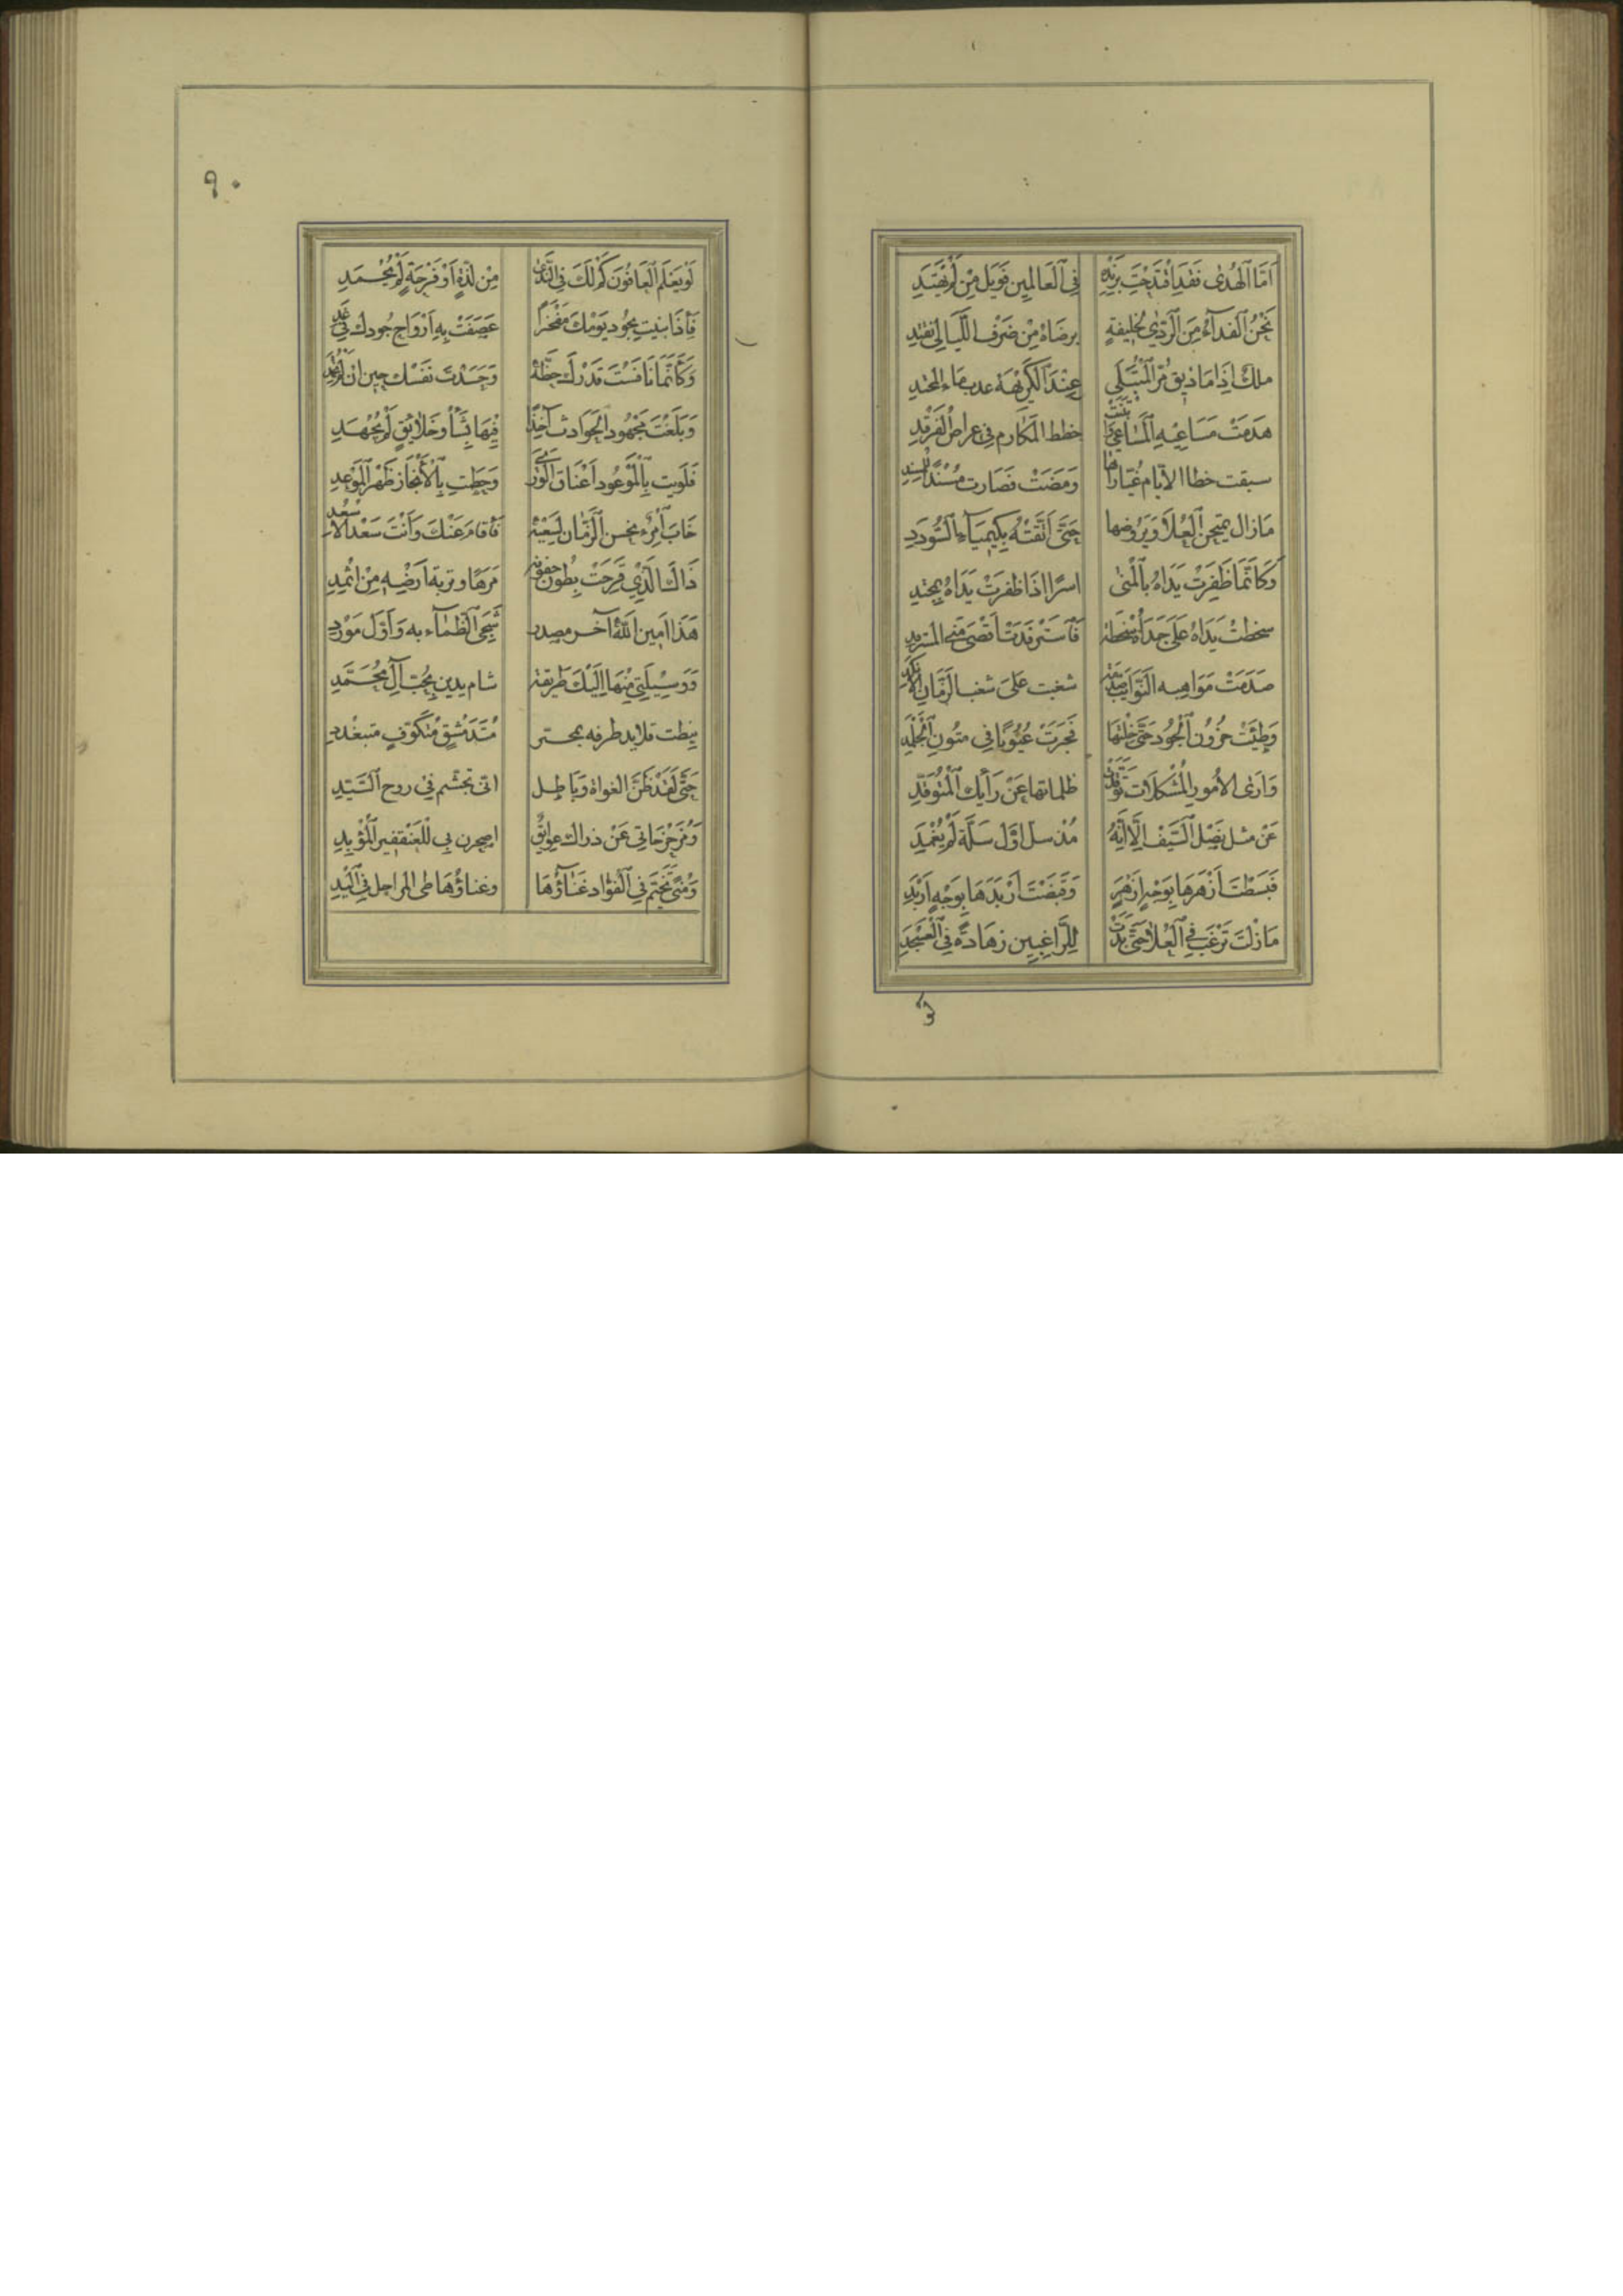 اَمَّا الْهُدٰى فَقَدِ اقْتَدَحْتَ بِزَنْدِهِ فِي الْعَالَمِينَ فَوَيْلُ مَنْ لَمْ يَهْتَدِ
نَحْنُ الْفِدَآءُ مِنَ الرَّدٰى لِخَلِيفَةٍ بِرِضَاهُ مِنْ صَرْفِ اللَّيَالِي نَفْتَدِ
ملكٌ اِذَا مَا ذيق مُرّ الْمُبْتَلِي عِنْدَ الْكَرِيْهَة عذب ماء المحتد
هَدَمَتْ مَسَاعِيْهِ الْمَسَاعِيَ وَابْتَنَتْ خطط المَكَارِم فِي عِرَاضِ الْفَرْقَدِ
سبقت خطا الاَيّام غُبّارَاتها وَمَضَتْ فَصَارت مُسْنَدًا لِلْمُسْنِدِ
مَازَال يمتحن الْعُلَا وَيَرُوضها حَتَّى اتَّقَتْهُ بِكِيمِيَآءِ السُّودَدِ
وَكَاَنَّمَا ظَفِرَتْ يَدَاهُ بِالْمُنٰى اسرًا اذَا ظفرَتْ يَدَاهُ بمجتد
سخطَتْ يَدَاهُ عَلَى جَدَاهُ سُخْطَةً فَاسْتَرْفَدَتْ اَقْصَى مُنَى المسترفد
صَدَمَتْ مَوَاهِبه النَّوَايِبَ صَدْمَةً شغبت عَلَى شغب الزَّمَان الْاَنْكَدِ
وَطِئَتْ حُزُونَ الْجُودِ حَتَّى خِلْتُهَا فَجَرَتْ عُيُونًا فِي مُتُونِ الْجَلْمَدِ
وَاَرَى الْاُمُورَ الْمُشْكِلَات تَمَزَّقَتْ ظلماتها عَنْ رَأْيِكَ الْمُتَوَقِّدِ
عَنْ مثل نَصْلِ السَّيْفِ اِلَّا اَنَّهُ مُذْ سل اَوَّل سَلَّة لَمْ يُغْمَدِ
فَبَسَطْتَ اَزْهَرَهَا بِوَجْهٍ اَزْهَرٍ وَقَبَضْتَ اَرْبَدَهَا بِوَجْهٍ اَرْبَدِ
مَازِلْتَ تَرْغَبُ فِي الْعُلَا حَتَّى بَدَتْ لِلرَّاغِبِين زهَادَةٌ فِي الْعَسْجَدِ
لو
٩٠
لَوْ يَعْلَمُ الْعَافُونَ كَمْ لَكَ فِي النَّدٰى مِنْ لَذَّةٍ اَوْ فَرْحَةٍ لَمْ يُحْمَدِ
فَاِذَا بنيت بِجُودِ يَوْمِكَ مَفْخَرًا عَصَفَتْ بِهِ اَرْوَاحُ جُودِكَ فِي غَدِ
وَكَاَنَّمَا نَافَسْتَ قَدْرَكَ حَظَّهُ وَحَسَدْتَ نَفْسَكَ حِين ان لَمْ تُحْسَدِ
وَبَلَغْتَ مَجْهُودَ الْحَوَادِث آخِذًا فِيهَا بِشَأْوِ خَلَائِقٍ لَمْ يُجْهَدِ
فَلَوَيْتَ بِالْمَوْعُودِ اَعْنَاقَ الْوَرٰى وَحَطَّتِ بِالْاِنْجَازِ ظَهْرَ الْمَوْعِدِ
خَابَ امْرُءٌ نحس الزَّمَان لِسَعْيِهِ فَاَقَامَ عَنْكَ وَاَنْتَ سَعْد الاسْعُدِ
ذَاكَ الَّذِي قَرِحَتْ بُطُون جفونه مَرَهًا وتربة اَرْضِهِ مِنْ اثْمِدِ
هَذَا اَمِين اللهِ آخر مصدر شَجِيَ الظَّمَآء به وَاَوَّلُ مَوْرِدِ
وَوَسِيلَتِي مِنْهَا اِلَيْكَ طَرِيفَة شام يدين بِحُبِّ آلِ مُحَمَّدِ
نِيطت قلايد ظرفه بمحبر مُتَدَمْشِقٍ مُتَكَوِّفٍ متبغدد
حَتَّى لَقَدْ ظَنَّ الغواة وَبَاطِل انى تجسّم فِي روح السَّيِّدِ
وَمُزَحْزِحَاتِي عَنْ ذراك عَوَائِقٌ اصحرن بِي لِلْعَنْقَفِير الْمُؤْيِدِ
وَمَتَى يُخَيِّم فِي الْفُؤَادِ عَنَاؤُهَا وغناؤُهَا طى المراحل فِي الْيَدِ